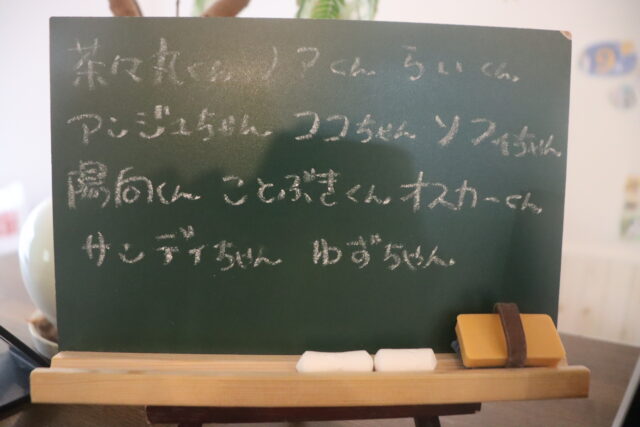 茶々丸くん ノアくん らいくん
アンジュちゃん ココちゃん ソフィちゃん
陽向くん ことぶきくん オスカーくん
サンディちゃん ゆずちゃん